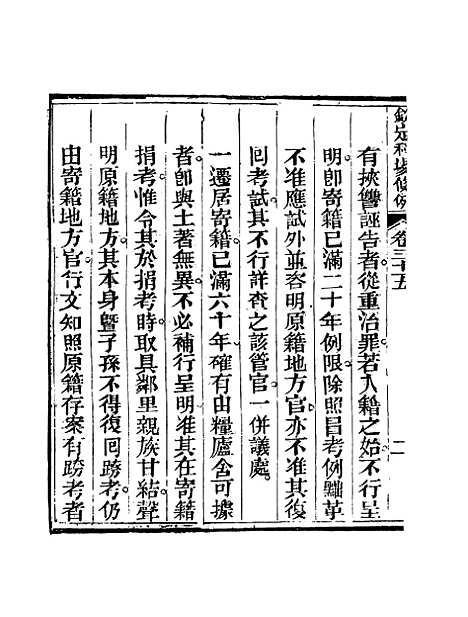 欽定科場條例　卷三十五　二
有挾讐誣告者從重治罪若入籍之始不行呈
明卽寄籍已滿二十年例限除照冒考例黜革
不准應試外並咨明原籍地方官亦不准其復
囘考試其不行詳查之該管官一併議處
一遷居寄籍已滿六十年確有田糧廬舍可據
者卽與土著無異不必補行呈明准其在寄籍
捐考惟令其於捐考時取具鄰里親族甘結聲
明原籍地方其本身曁子孫不得復囘跨考仍
由寄籍地方官行文知照原籍存案有跨考者